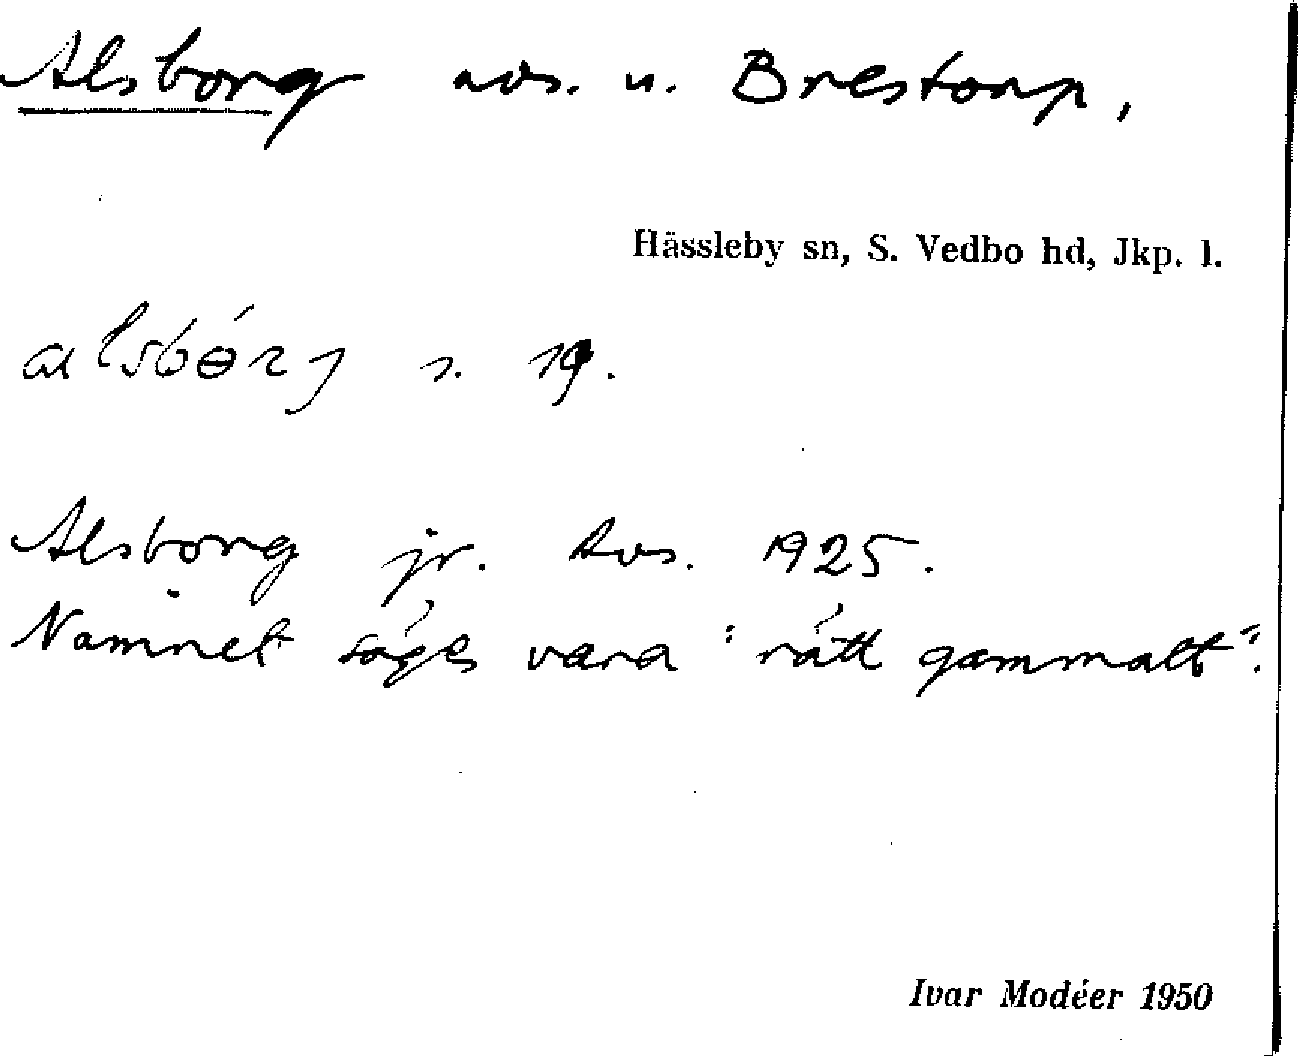 Alsborg avs. u. Brestorp,
Hässleby sn, S. Vedbo hd, Jkp. l.
alsbórj s. 19.
Alsborg jr. Avs. 1925.
Namnet säges vara "rätt gammalt".
Ivar Modéer 1950